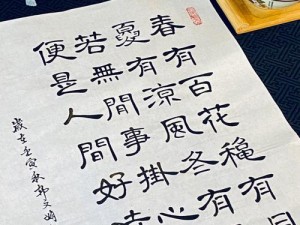 春有百花穐有月
夏有涼風冬有
若無閒事掛心
便是人間好時
歲在壬寅秋